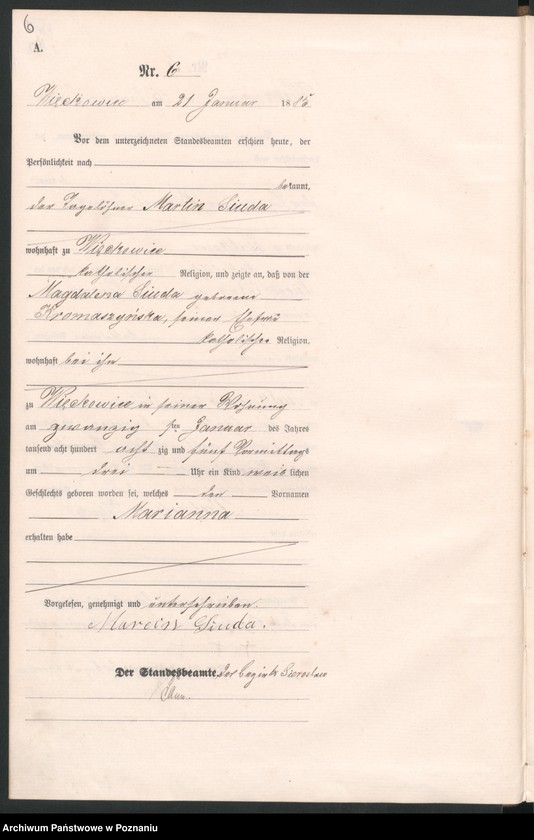 6
A.
Nr. 6
Więckowice am 21 Januar 1885
Vor dem unterzeichneten Standesbeamten erschien heute, der
Persönlichkeit nach
bekannt,
der Tagelöhner Martin Siuda
wohnhaft zu Więckowice
katholischer Religion, und zeigte an, daß von der
Magdalena Siuda geborene
Kromaszyńska, seiner Ehefrau
katholischer Religion,
wohnhaft bei ihm
zu Więckowice in seiner Wohnung
am zwanzig sten Januar des Jahres
tausend acht hundert acht zig und fünf Vormittags
um drei Uhr ein Kind weib lichen
Geschlechts geboren worden sei, welches den Vornamen
Marianna
erhalten habe
Vorgelesen, genehmigt und unterschrieben.
Marcin Siuda.
Der Standesbeamte des Bezirks
Archiwum Państwowe w Poznaniu